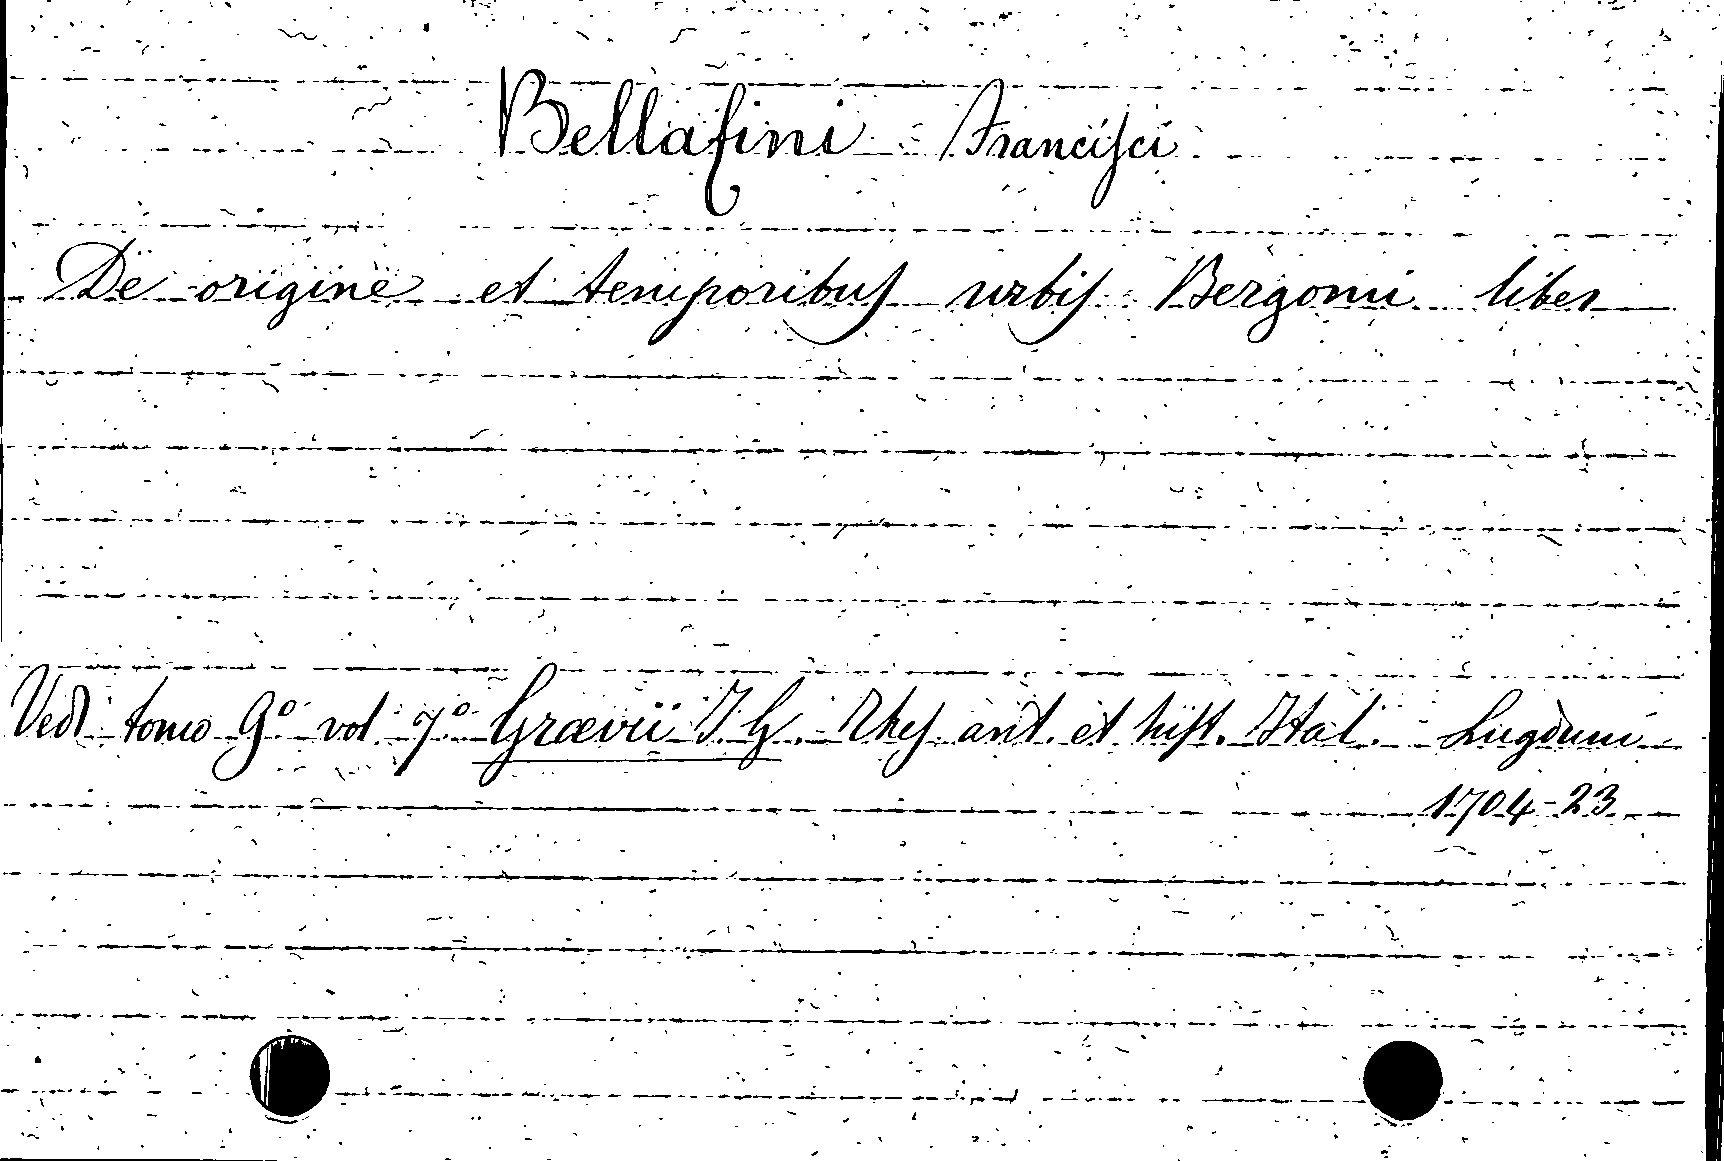 Bellafini Francisci
De origine et temporibus urbis Bergomi liber
Vedi tomo 9º vol 7º Grævii I. G. Thes. ant. et hist. Ital. Lugduni
1704-23